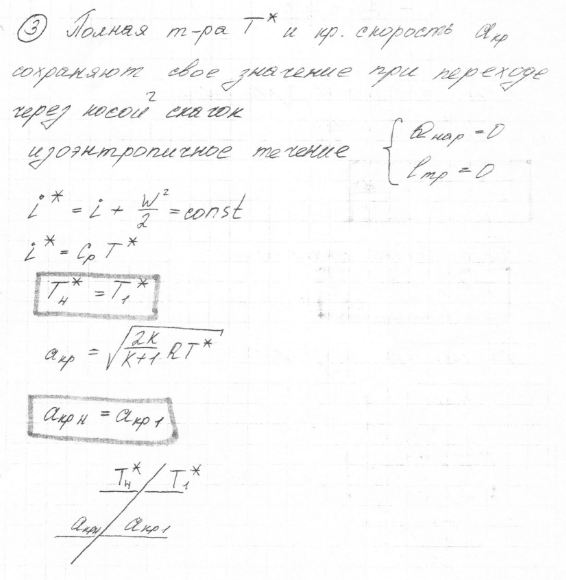 ③ Полная т-ра T* и кр. скорость aкр
сохраняют свое значение при переходе
через косой 2 скачок
изоэнтропичное течение { Qнар = 0
lтр = 0
i* = i + W²/2 = const
i* = Cp T*
Tн* = T1*
aкр = √(2K/(K+1) RT*)
aкрн = aкр1
Tн* / T1*
aкрн / aкр1